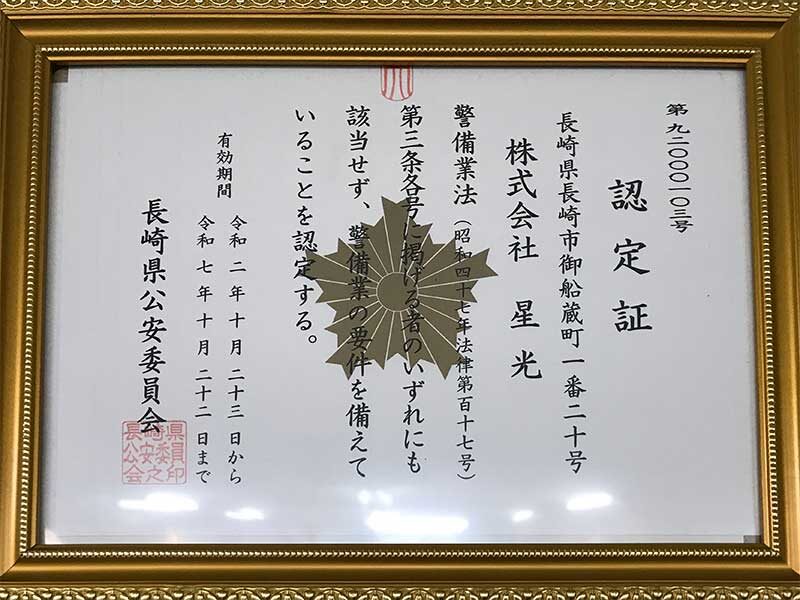 第九二〇〇〇一〇三号
認定証
長崎県長崎市御船蔵町一番二十号
株式会社 星光
警備業法（昭和四十七年法律第百十七号）
第三条各号に掲げる者のいずれにも
該当せず、警備業の要件を備えて
いることを認定する。
有効期間
令和二年十月二十三日から
令和七年十月二十二日まで
長崎県公安委員会
長崎県
公安委員
会之印